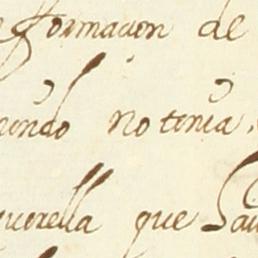 formacion de
no tenia,
querella que